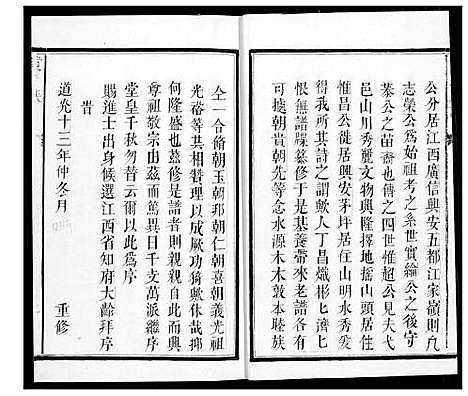 公分居江西廣信興安五都江家嶺則凢
志榮公為始祖考之系世實綸公之後守
綦公之苗裔也分四世惟超公見夫弋
邑山川秀麗文物興隆擇地揺山頭居
惟昌公徙居興安茅坪居住山明水秀爰
得我所其謂之歟人丁昌熾彬匕濟匕
恨無譜牒纂修于是基養帶來老譜各有
可據朝貴朝先等念水源木本敦本睦族
仝一合脩朝玉朝邦朝仁朝喜朝義光祖
光裕等其相賛理以成厥功猗歟休哉抑
何隆盛也茲修是譜者則親親由此而興
尊祖敬宗由茲而篤異日千支萬派繼序
堂皇千秋勿昔云爾以此為序
昔
賜進士出身候選江西省知府大齡拜序
道光十三年仲冬月
重修